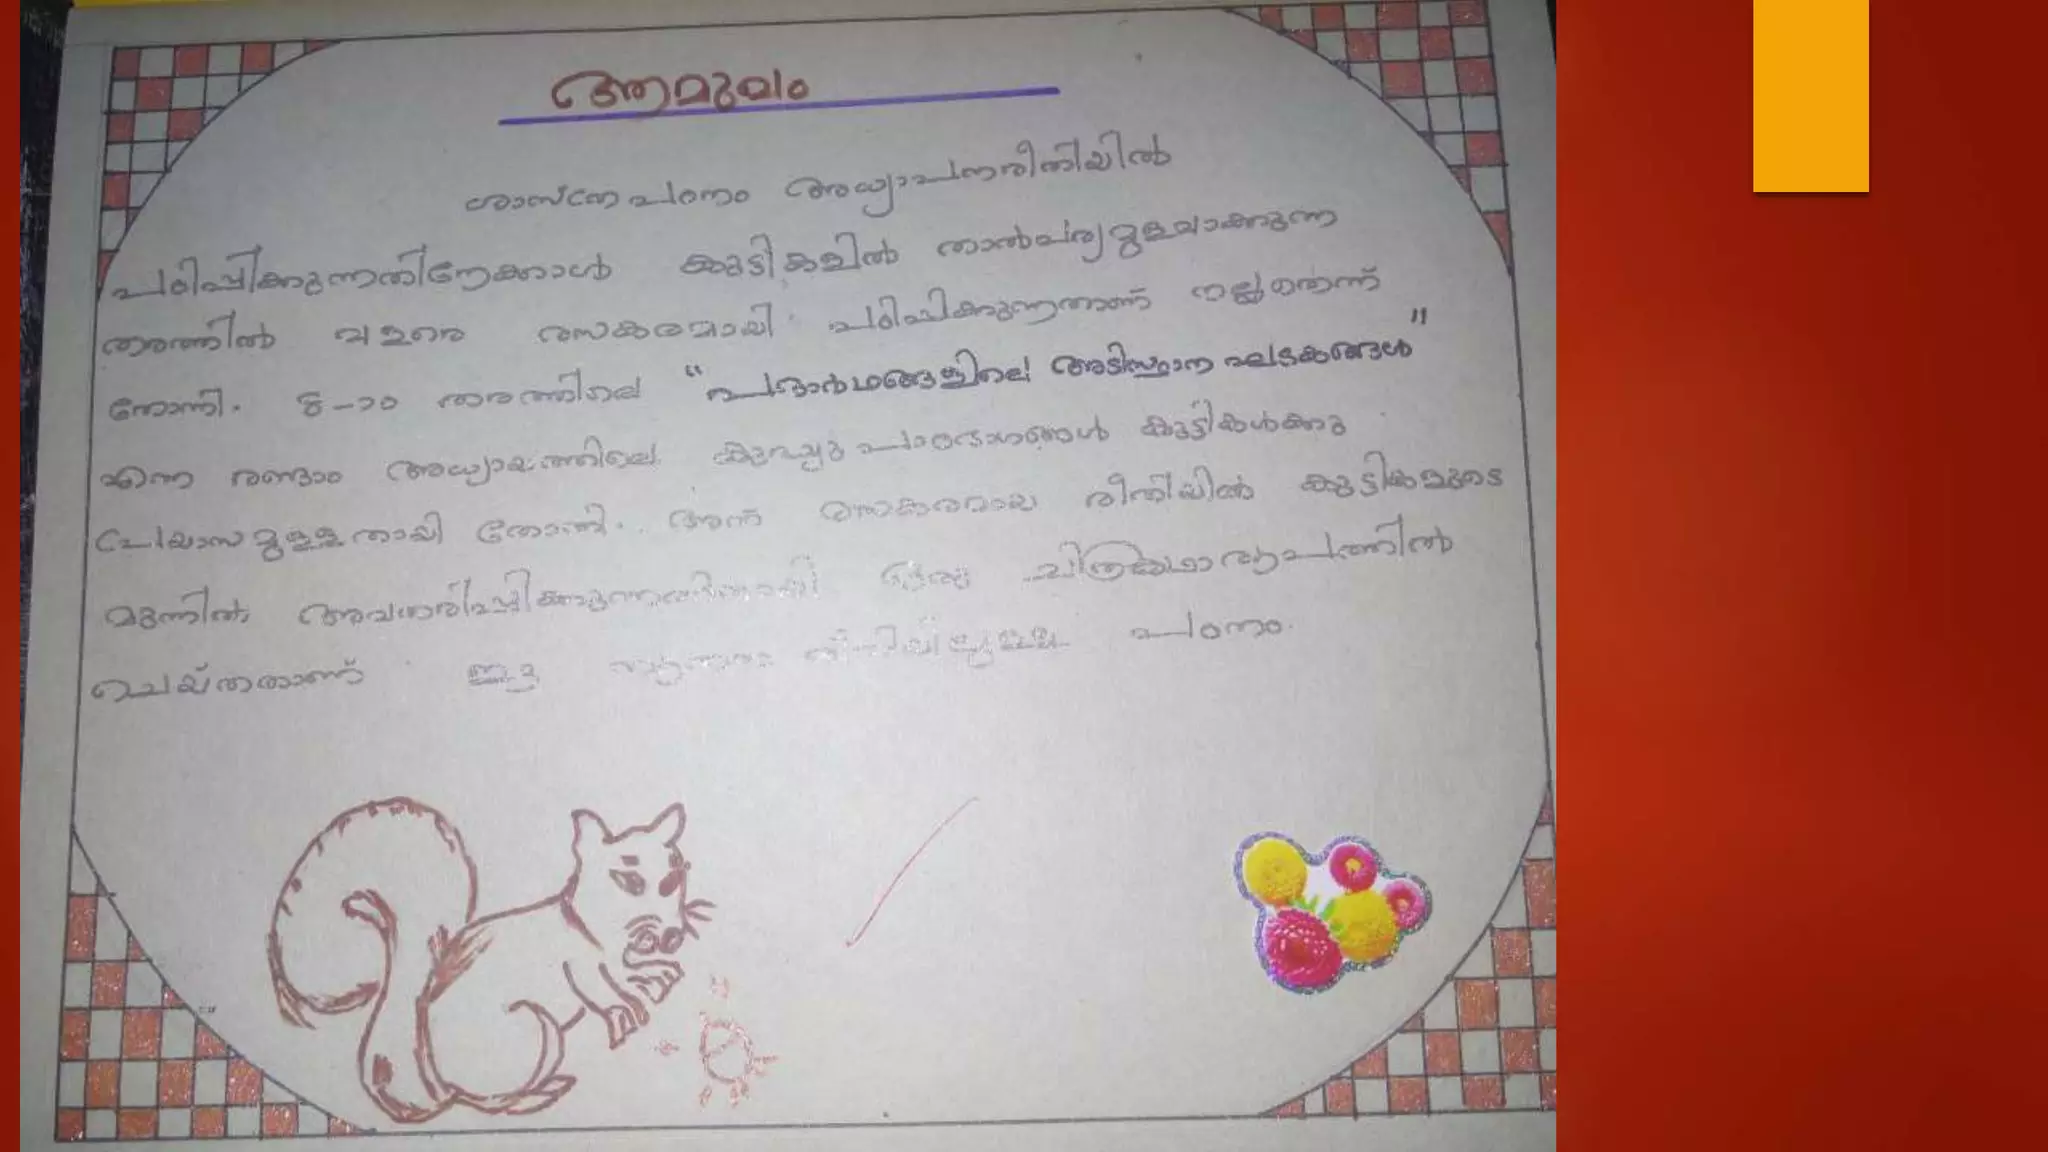 ആമുഖം
ശാസ്ത്ര പഠനം അധ്യാപനരീതിയിൽ
പഠിപ്പിക്കുന്നതിനേക്കാൾ കുട്ടികളിൽ താൽപര്യമുളവാക്കുന്ന
തരത്തിൽ വളരെ രസകരമായി പഠിപ്പിക്കുന്നതാണ് നല്ലതെന്ന്
തോന്നി. 8-ാം തരത്തിലെ "പദാർഥങ്ങളിലെ അടിസ്ഥാന ഘടകങ്ങൾ"
എന്ന രണ്ടാം അധ്യായത്തിലെ കുറച്ചു പാഠഭാഗങ്ങൾ കുട്ടികൾക്കു
പ്രയാസമുള്ളതായി തോന്നി. അത് രസകരമായ രീതിയിൽ കുട്ടികളുടെ
മുന്നിൽ അവതരിപ്പിക്കുന്നതിനായി ഒരു ചിത്രകഥാരൂപത്തിൽ
ചെയ്തതാണ് ഈ പഠനം.